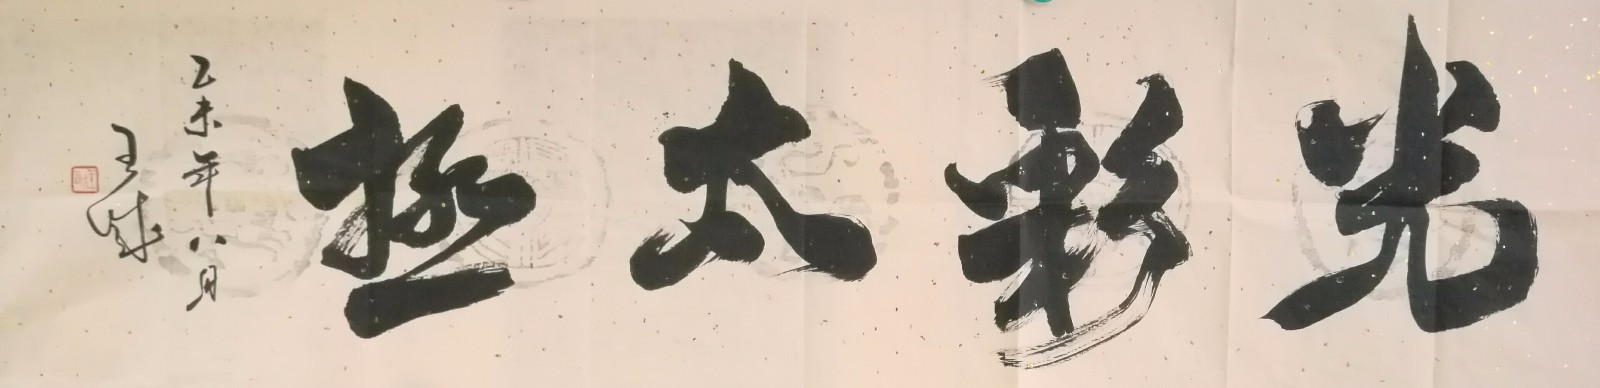 光彩太极
乙未年八月
王成